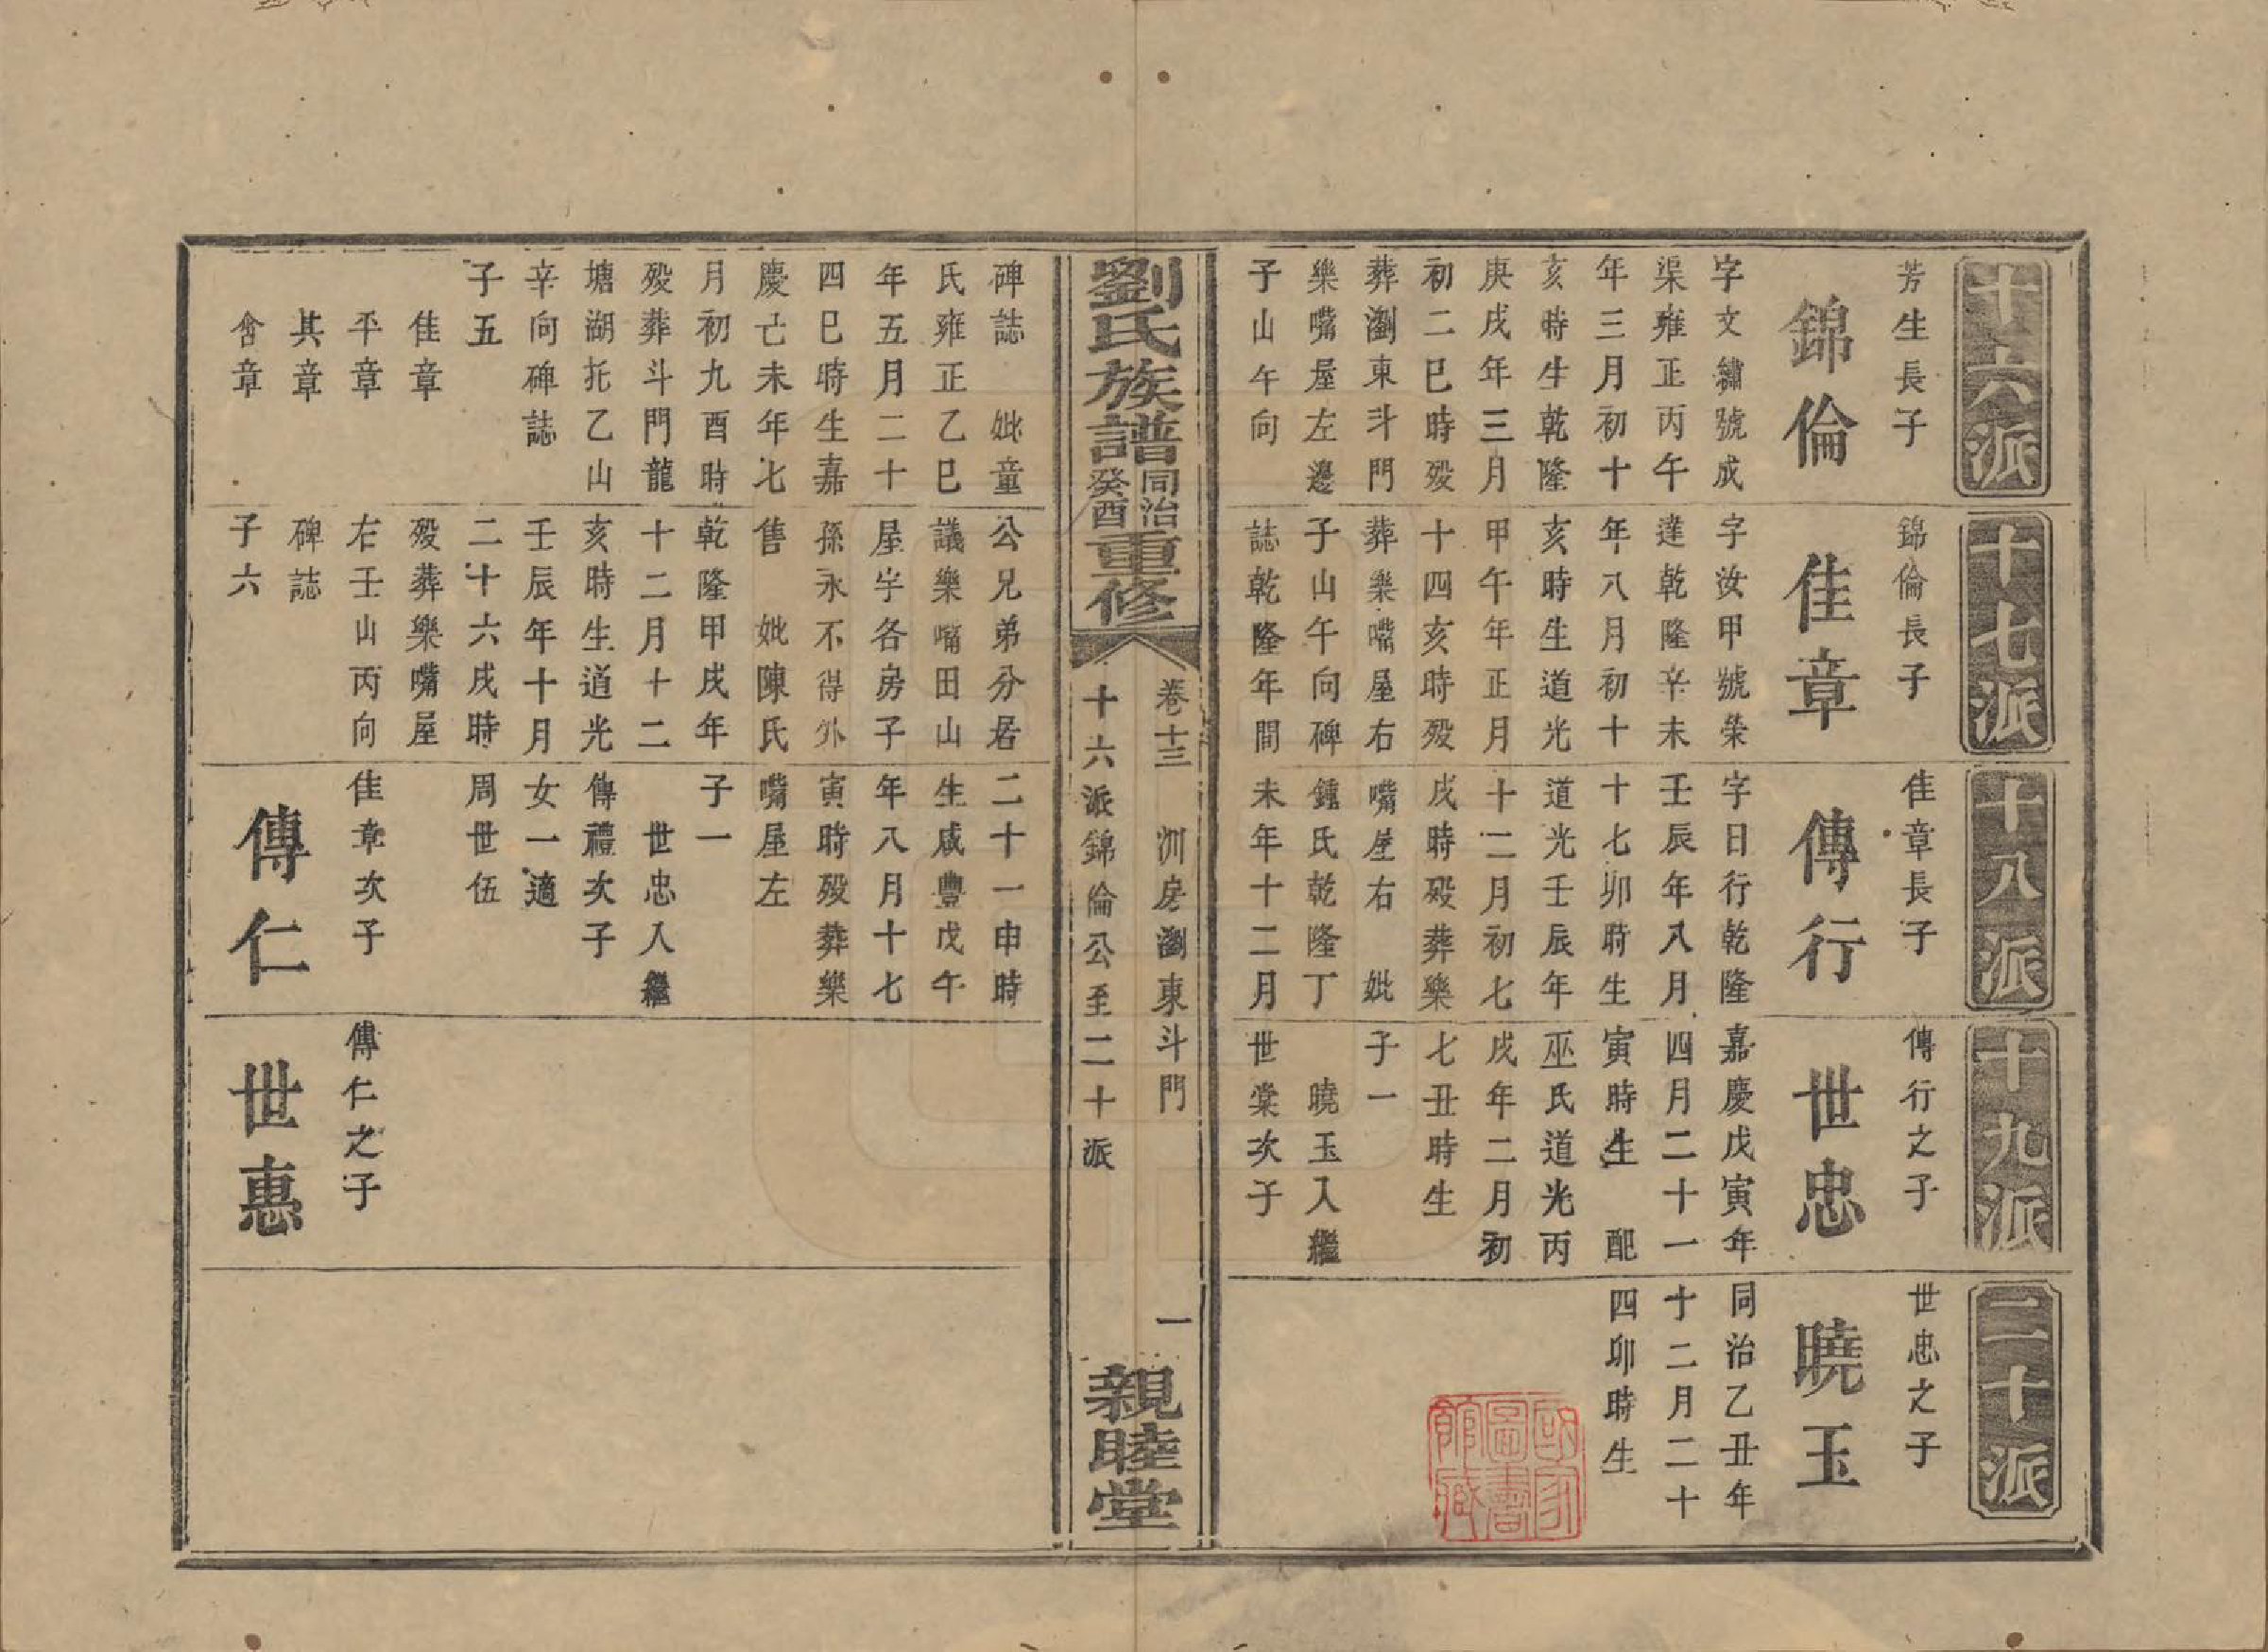 十六派
芳生長子
錦倫
字文繡號成
渠雍正丙午
年三月初十
亥時生乾隆
庚戌年三月
初二巳時歿
葬瀏東斗門
樂嘴屋左邊
子山午向
十七派
錦倫長子
佳章
字汝甲號榮
達乾隆辛未
年八月初十
亥時生道光
甲午年正月
十四亥時歿
葬樂嘴屋右
子山午向碑
誌乾隆年間
十八派
佳章長子
傳行
字日行乾隆
壬辰年八月
十七卯時生
道光壬辰年
十二月初七
戌時歿葬樂
嘴屋右 妣
鍾氏乾隆丁
未年十二月
十九派
傳行之子
世忠
嘉慶戊寅年
四月二十一
寅時生 配
巫氏道光丙
戌年二月初
七丑時生
子一
曉玉入繼
世棠次子
二十派
世忠之子
曉玉
同治乙丑年
十二月二十
四卯時生
劉氏族譜同治癸酉重修
卷十三 洲房瀏東斗門 一
十六派錦倫公至二十派
親睦堂
碑誌 妣童
氏雍正乙巳
年五月二十
四巳時生嘉
慶己未年七
月初九酉時
歿葬斗門龍
塘湖托乙山
辛向碑誌
子五
佳章
平章
其章
含章
公兄弟分居
議樂嘴田山
屋宇各房子
孫永不得外
售 妣陳氏
乾隆甲戌年
十二月十二
亥時生道光
壬辰年十月
二十六戌時
歿葬樂嘴屋
右壬山丙向
碑誌
子六
二十一申時
生咸豐戊午
年八月十七
寅時歿葬樂
嘴屋左
子一
世忠入繼
傳禮次子
女一適
周世伍
佳章次子
傳仁
傳仁之子
世惠
國家圖書館藏